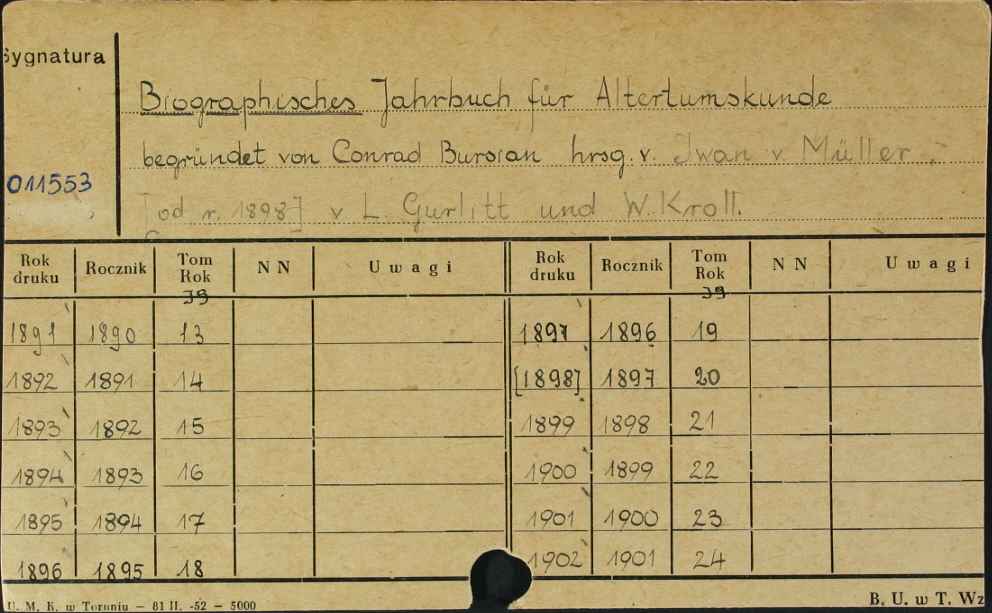 Sygnatura
Biographisches Jahrbuch für Altertumskunde
begründet von Conrad Bursian hrsg. v. Iwan v Müller,
011553
[od r. 1898] v L. Gurlitt und W. Kroll.
Rok druku Rocznik Tom Rok NN Uwagi Rok druku Rocznik Tom Rok NN Uwagi
Jg Jg
1891 1890 13 1897 1896 19
1892 1891 14 [1898] 1897 20
1893 1892 15 1899 1898 21
1894 1893 16 1900 1899 22
1895 1894 17 1901 1900 23
1896 1895 18 1902 1901 24
U. M. K. w Toruniu — 81 II. -52 — 5000 B. U. w T. Wz